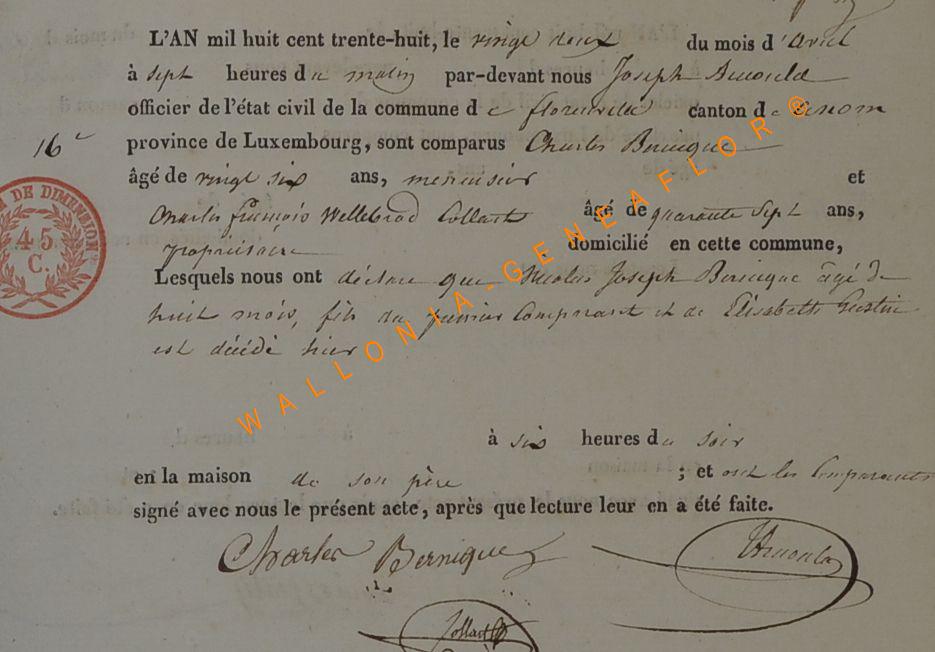 L'AN mil huit cent trente-huit, le vingt deux du mois d'avril
à sept heures du matin par-devant nous Joseph Arnould
officier de l'état civil de la commune de florenville canton de
16e province de Luxembourg, sont comparus Charles Bernique
âgé de vingt six ans, menuisier et
Charles françois Collart âgé de quarante sept ans,
propriétaire domicilié en cette commune,
Lesquels nous ont déclaré que Nicolas Joseph Bernique âgé de
huit mois, fils du premier Comparant et de Elisabeth
est décédé hier
à six heures du soir
en la maison de son père ; et ont les Comparants
signé avec nous le présent acte, après que lecture leur en a été faite.
Charles Bernique JArnould
Collart
45
C.
WALLONIA-GENEAFLOR®